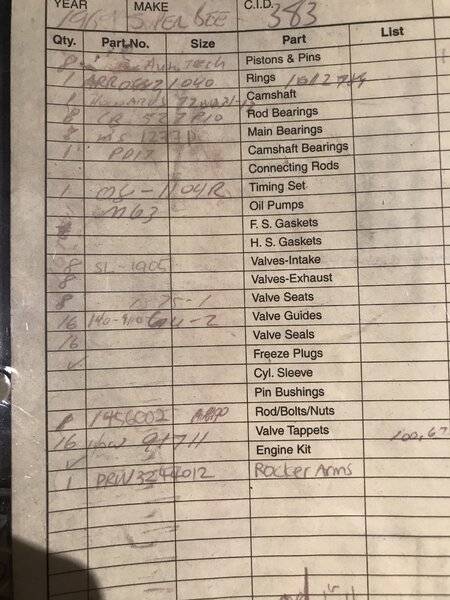 YEAR MAKE C.I.D. 383
196 SUPER BEE
Qty. Part No. Size Part List
8 Autotech Pistons & Pins
1 040 Rings
1 Camshaft
8 CR 527P10 Rod Bearings
8 MS 1277P Main Bearings
1 PD17 Camshaft Bearings
Connecting Rods
1 1104R Timing Set
M63 Oil Pumps
F. S. Gaskets
H. S. Gaskets
8 SL-1905 Valves-Intake
8 Valves-Exhaust
8 Valve Seats
16 Valve Guides
16 Valve Seals
✓ Freeze Plugs
Cyl. Sleeve
Pin Bushings
1456002 Rod/Bolts/Nuts
16 91711 Valve Tappets 100.67
✓ Engine Kit
1 PRW3244012 Rocker Arms